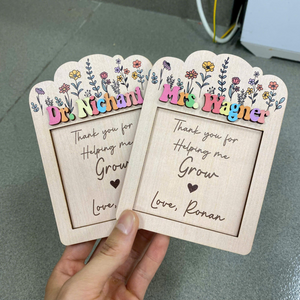 Dr. Nichard
Thank you for
Helping me
Grow
Love,
Mrs Wagner
Thank you for
Helping me
Grow
Love, Ronan